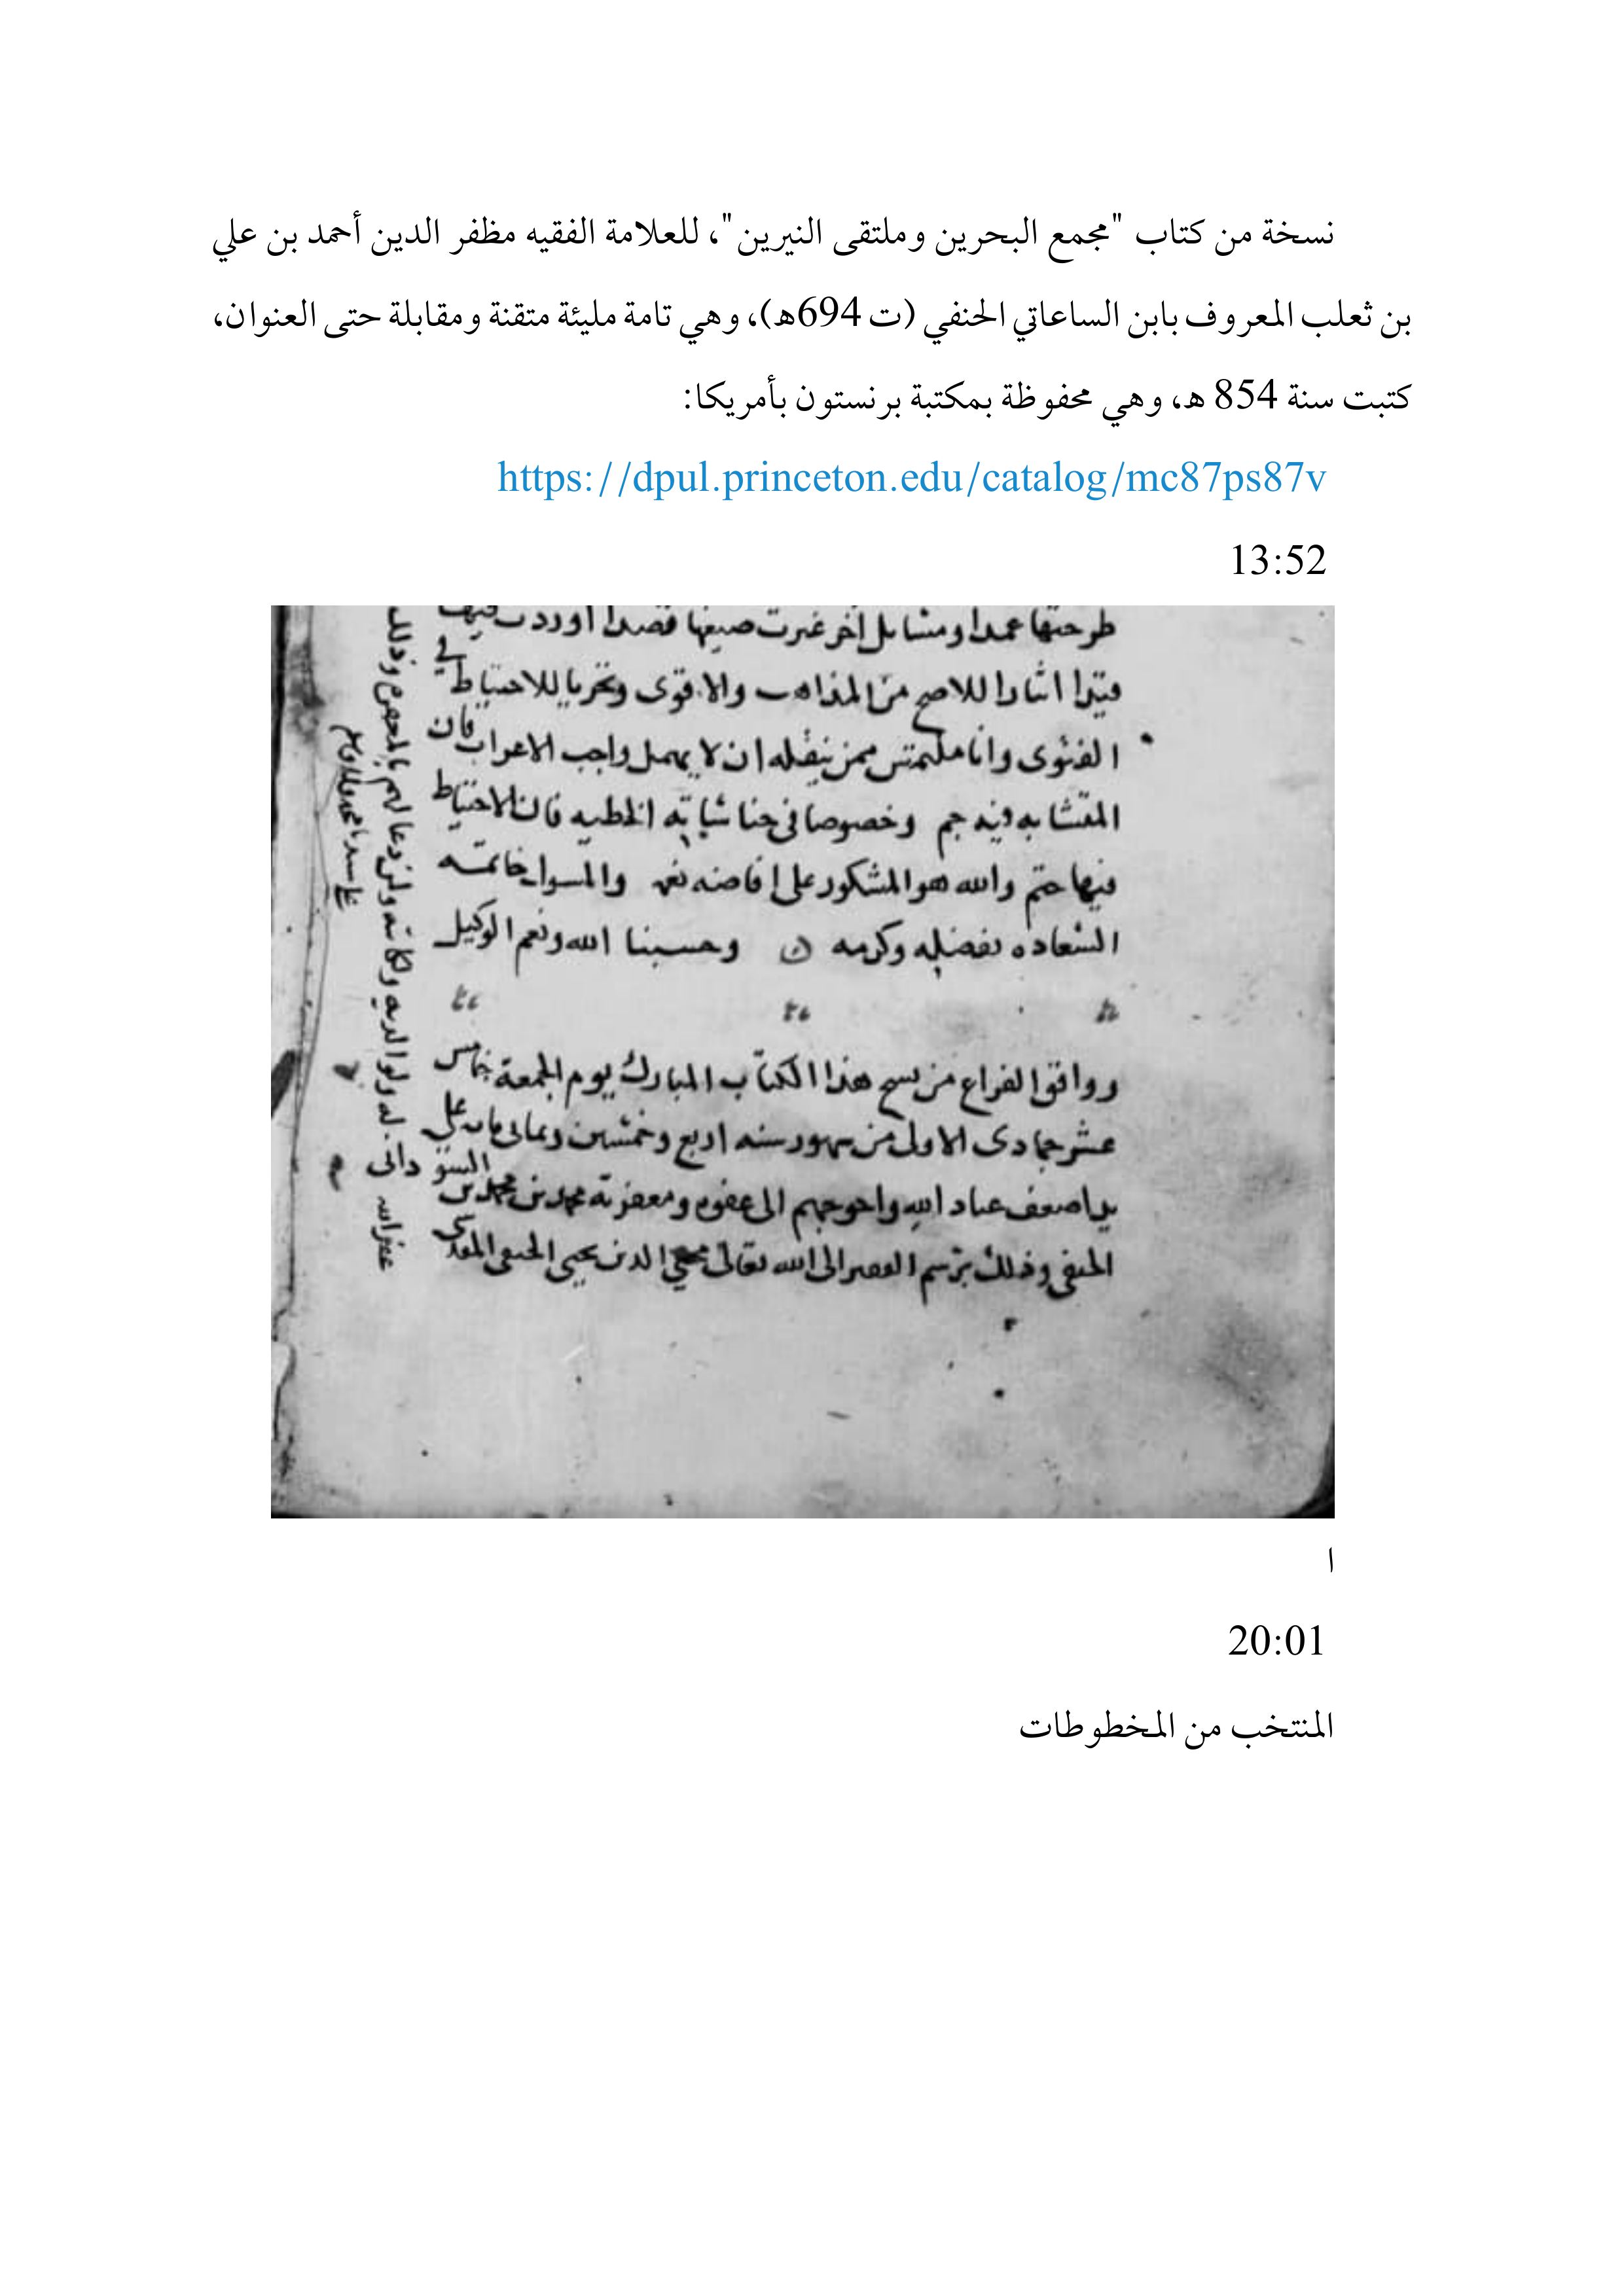 نسخة من كتاب "مجمع البحرين وملتقى النيرين"، للعلامة الفقيه مظفر الدين أحمد بن علي
بن ثعلب المعروف بابن الساعاتي الحنفي (ت 694ه)، وهي تامة مليئة متقنة ومقابلة حتى العنوان،
كتبت سنة 854 ه، وهي محفوظة بمكتبة برنستون بأمريكا:
https://dpul.princeton.edu/catalog/mc87ps87v
13:52
طرحتها عمدا ومسايل اخر غيرت صيغها قصدا اوردت فيها
للاصح من المذاهب والاقوى وتحريا للاحتياط في
الفتوى وانا ملتمس ممن ينقله ان لا يهمل واجب الاعراب فان
المتشابه فيه جم وخصوصا في كتابته فان الاحتياط
فيها حتم والله هو المشكور على افاضه نعمه والمسول خاتمه
السعاده بفضله وكرمه وحسبنا الله ونعم الوكيل
ووافق الفراغ من نسخ هذا الكتاب المبارك يوم الجمعة خامس
عشر جمادى الاولى من شهور سنه اربع وخمسين وثماني مايه على
يد اضعف عباد الله واحوجهم الى عفوه ومغفرته محمد بن محمد بن
الحنفي وذلك برسم الفقير الى الله تعالى محيي الدين يحيى الحنفي
غفر الله له ولوالديه ولكاتبه ولمن دعا لهم
ا
20:01
المنتخب من المخطوطات